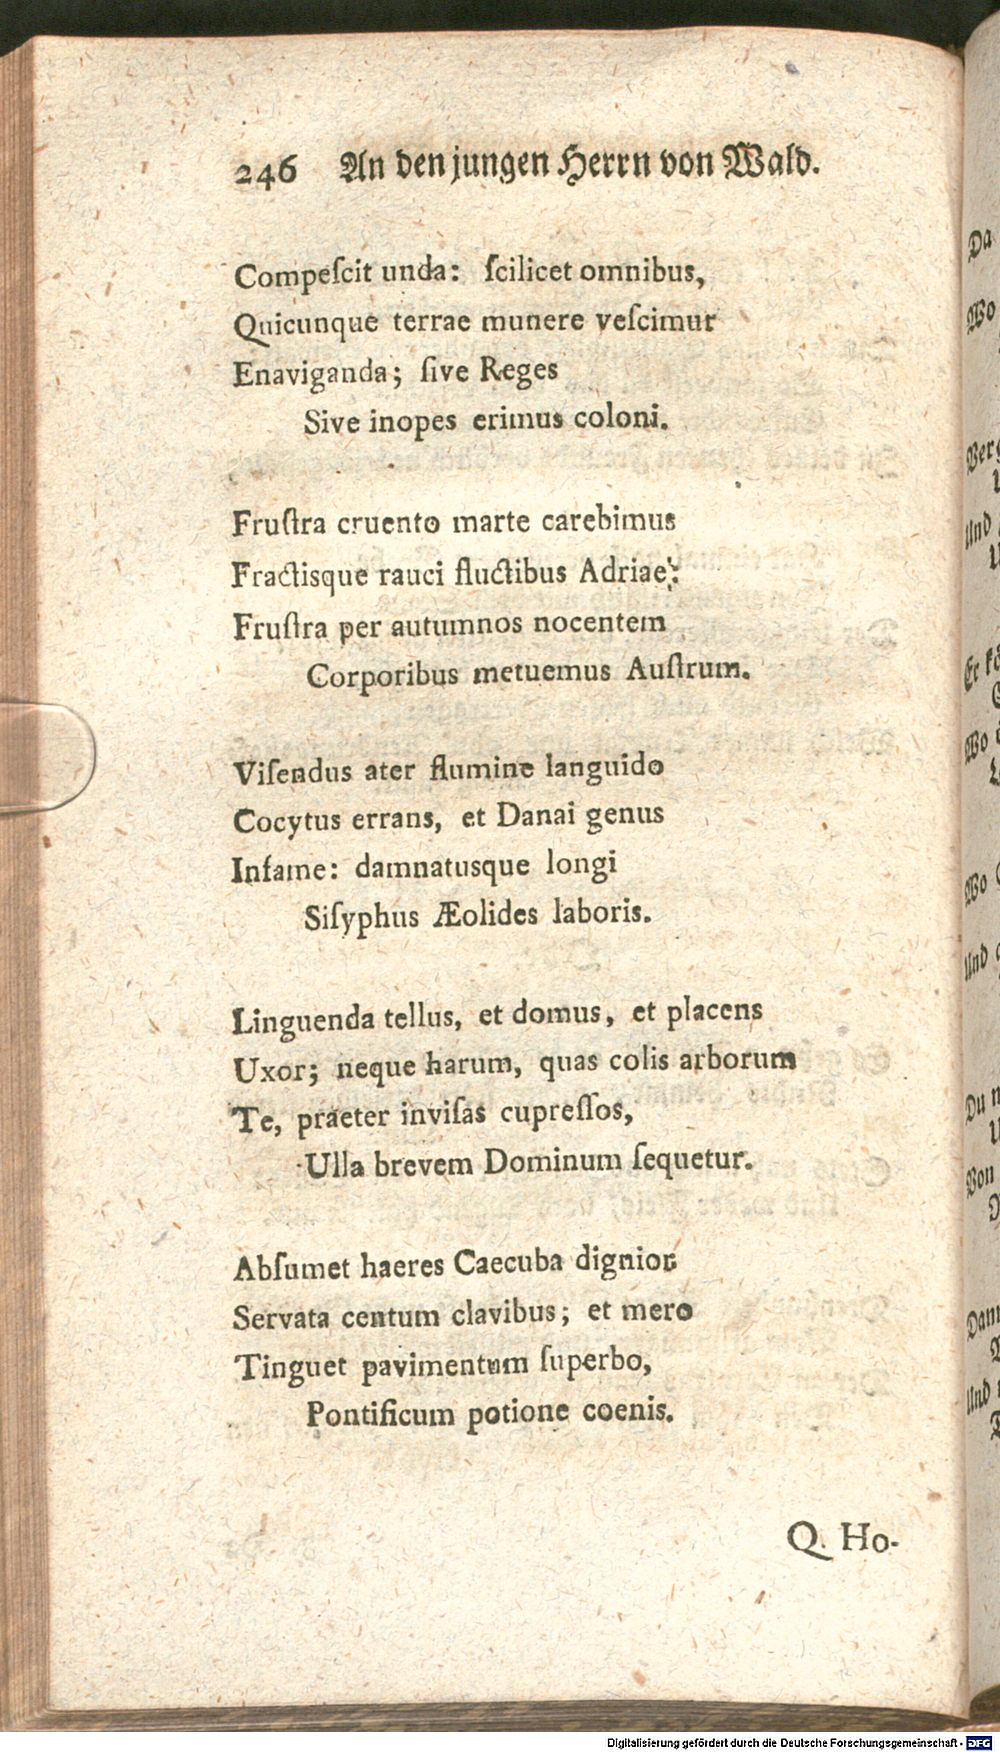 246 An den jungen Herrn von Wald.
Compeſcit unda: ſcilicet omnibus,
Quicunque terrae munere veſcimur
Enaviganda; ſive Reges
Sive inopes erimus coloni.
Fruſtra cruento marte carebimus
Fractisque rauci fluctibus Adriae;
Fruſtra per autumnos nocentem
Corporibus metuemus Auſtrum.
Viſendus ater flumine languido
Cocytus errans, et Danai genus
Infame: damnatusque longi
Siſyphus Æolides laboris.
Linguenda tellus, et domus, et placens
Uxor; neque harum, quas colis arborum
Te, praeter inviſas cupreſſos,
Ulla brevem Dominum ſequetur.
Abſumet haeres Caecuba dignior
Servata centum clavibus; et mero
Tinguet pavimentum ſuperbo,
Pontificum potione coenis.
Q. Ho-
Da
Wo
Und
Er
Wo
Wo
Und
Du
Von
Und
Digitalisierung gefördert durch die Deutsche Forschungsgemeinschaft - DFG